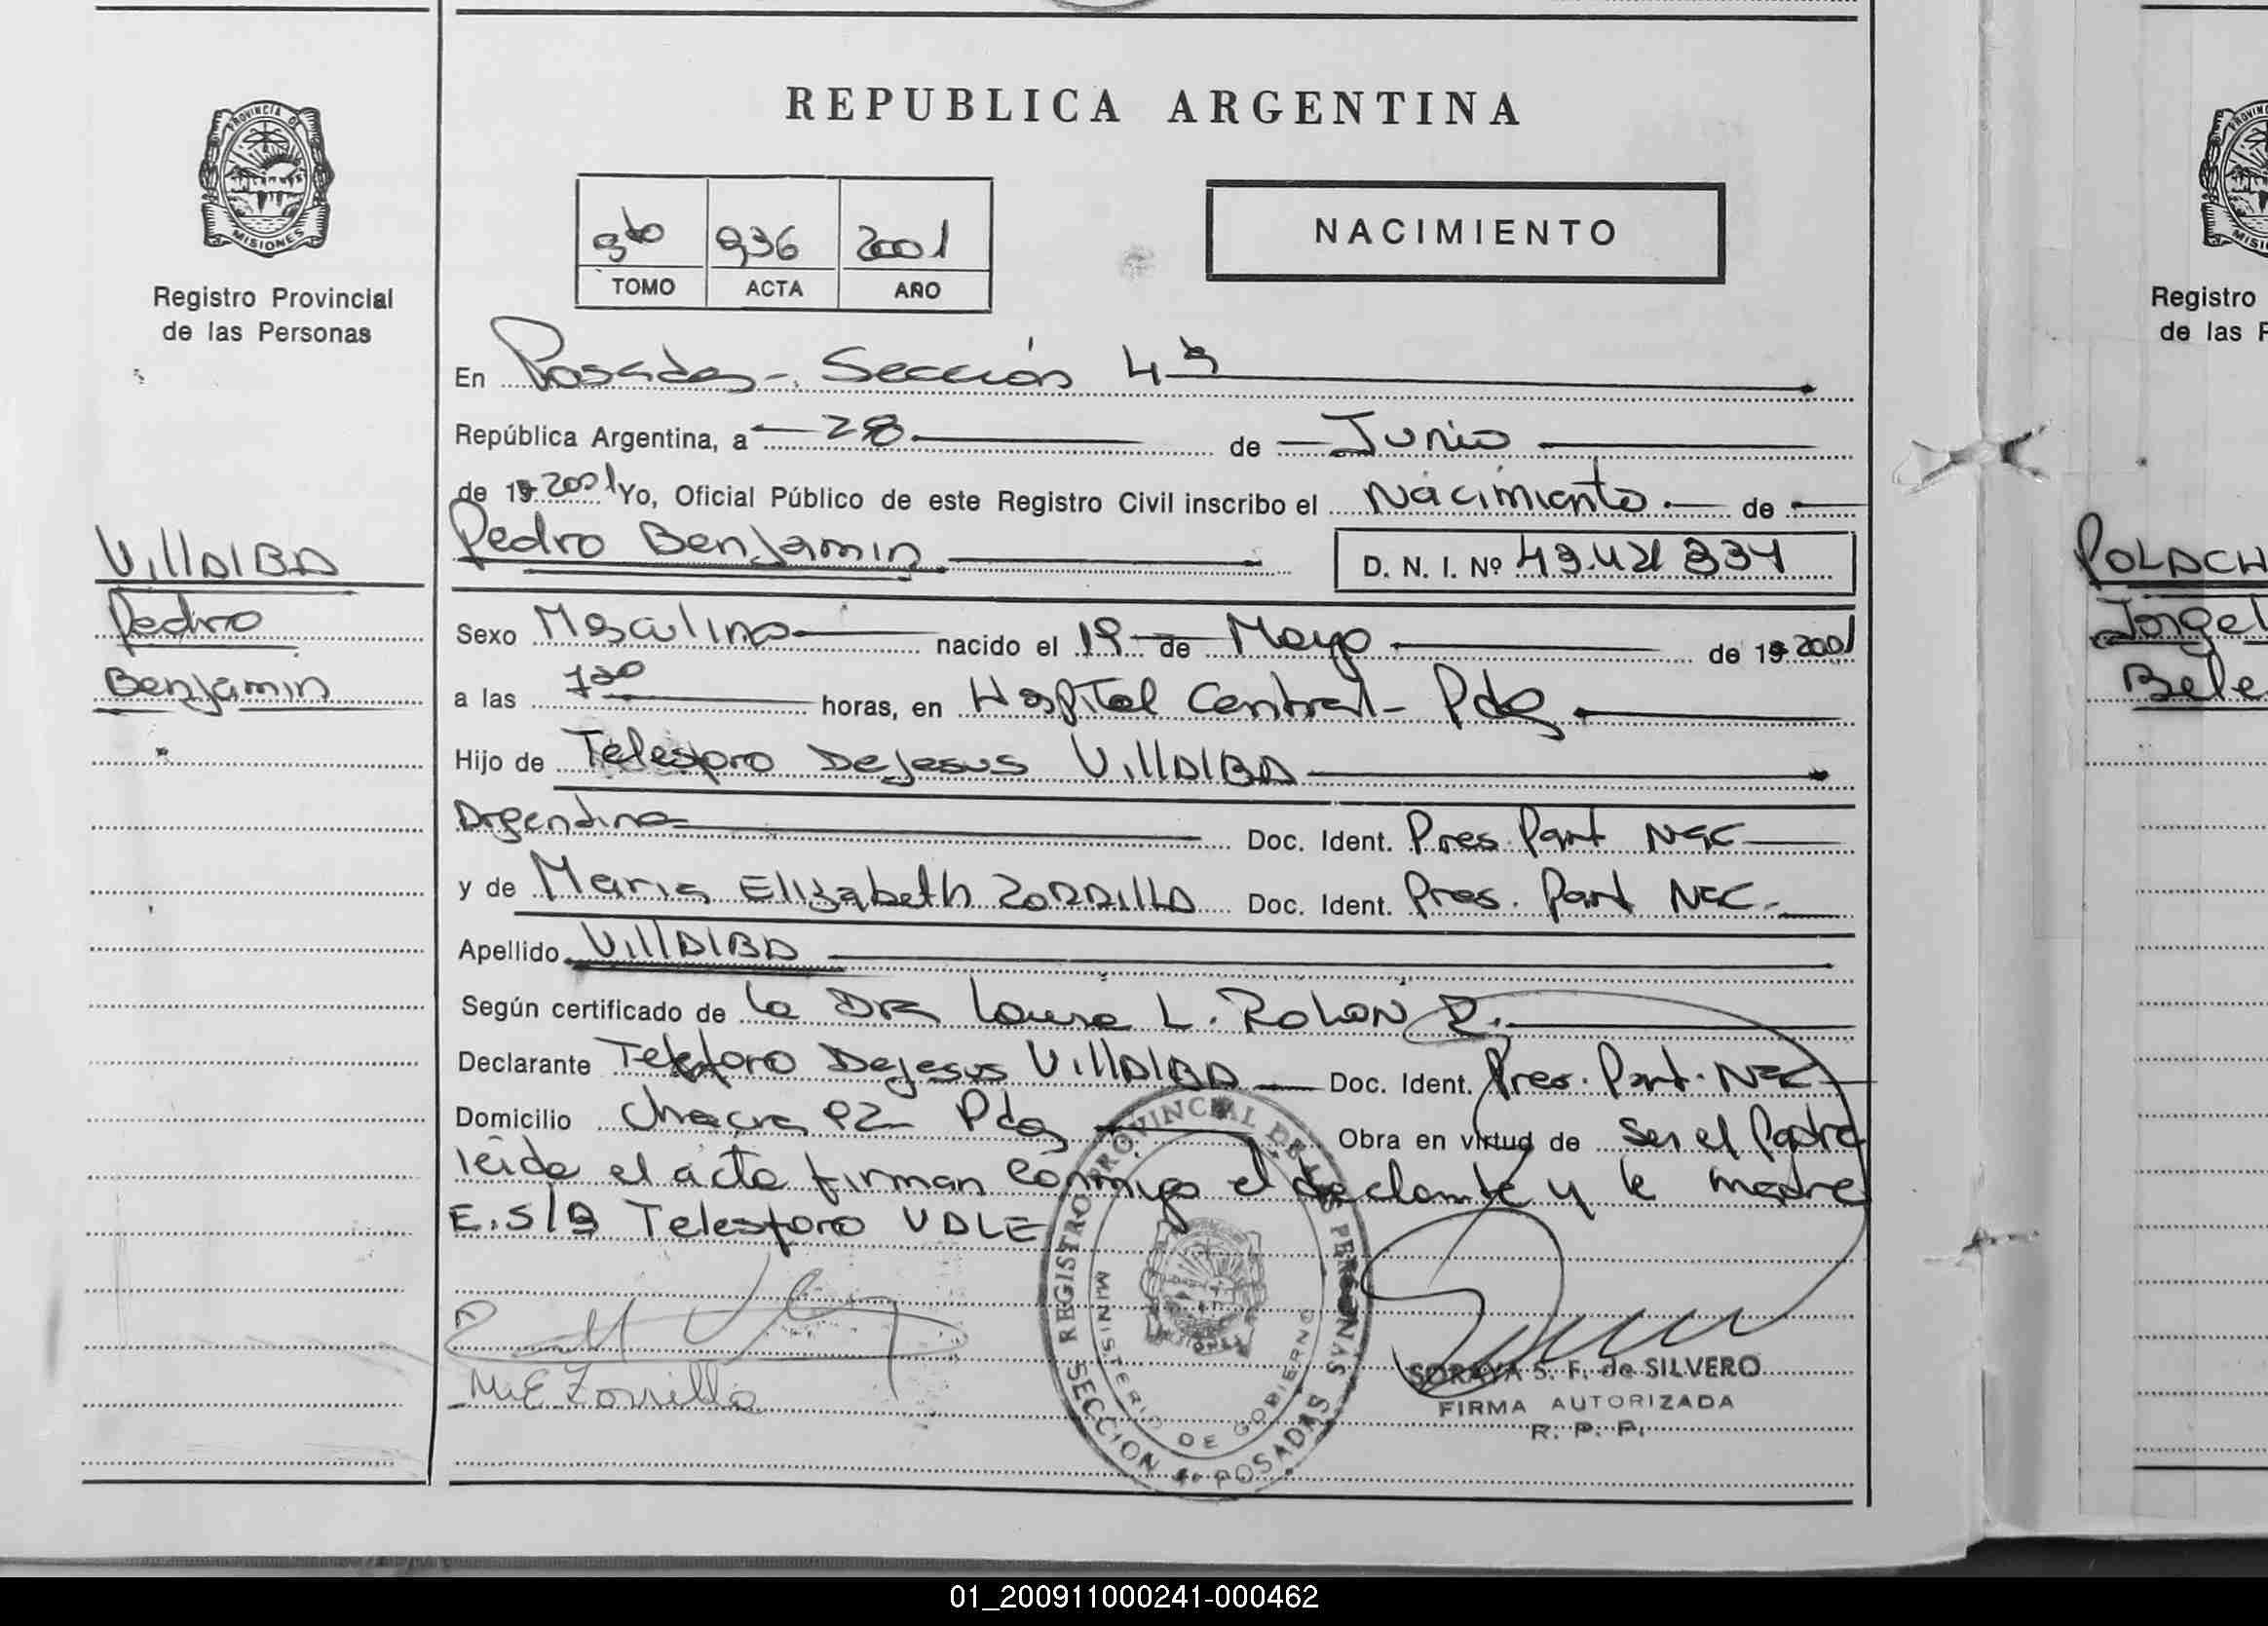 REPUBLICA ARGENTINA
PROVINCIA DE
MISIONES
Registro Provincial
de las Personas
936 2001
TOMO ACTA AÑO
NACIMIENTO
En Posadas - Sección 4ª
República Argentina, a 28 de Junio
de 19 2001 Yo, Oficial Público de este Registro Civil inscribo el Nacimiento de
Pedro Benjamin
D. N. I. Nº
VillAlBA
Pedro
Benjamin
Sexo Masculino nacido el 19 de Mayo de 19 2001
a las horas, en Hospital Central - Pdas
Hijo de Telesforo DeJesus VillAlBA
Argentina Doc. Ident. Pres. Part Nac
y de Maria Elizabeth ZORRillA Doc. Ident. Pres. Part Nac.
Apellido VillAlBA
Según certificado de la DRa Laura L. ROLON R.
Declarante Telesforo DeJesus VillAlBA Doc. Ident. Pres. Part. Nac
Domicilio Chacra Pdas Obra en virtud de ser el Padre
leida el acta firman conmigo el declarante y la madre
E.S/B Telesforo VALE
M.E Zorrilla
REGISTRO PROVINCIAL DE LAS PERSONAS
MINISTERIO DE GOBIERNO
SECCION 4ª POSADAS
SORAYA S. F. de SILVERO
FIRMA AUTORIZADA
R. P. P.
Registro
de las P
POLACH
Jorgel
Bele
01_200911000241-000462